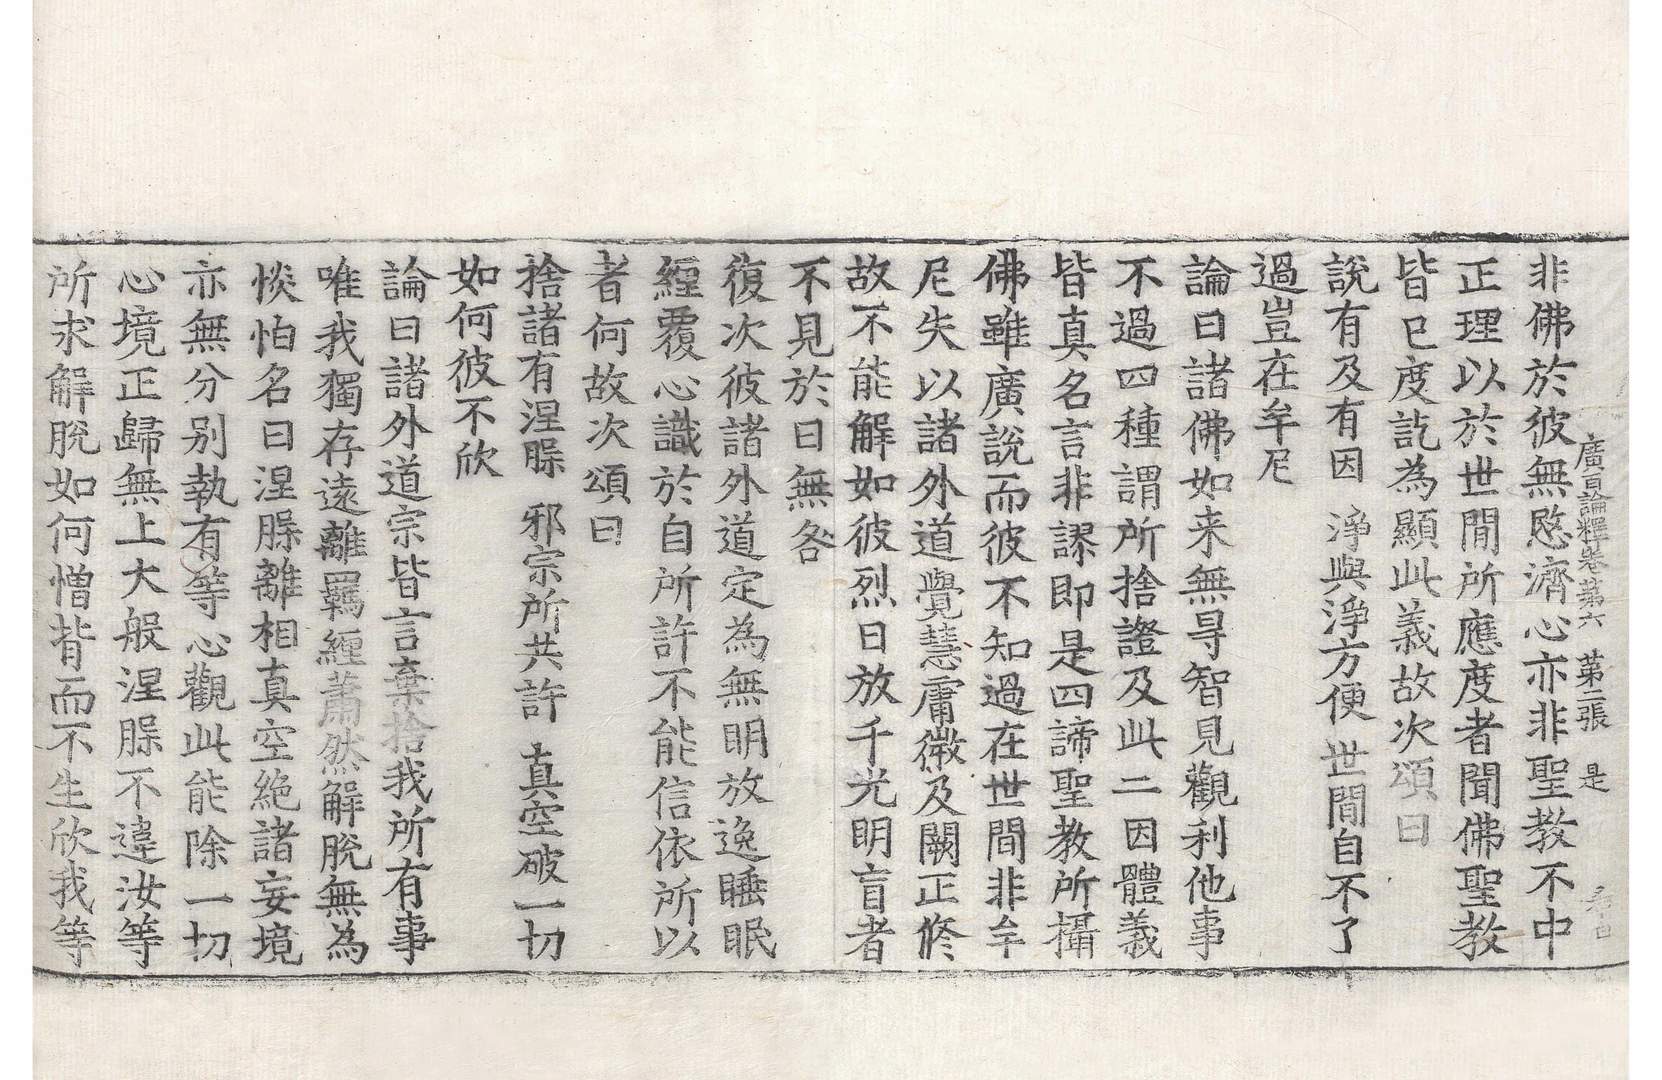 廣百論釋卷第六 第二張 是
非佛於彼無慜濟心亦非聖教不中
正理以於世間所應度者聞佛聖教
皆已度訖為顯此義故次頌曰
說有及有因 淨與淨方便 世間自不了
過豈在牟尼
論曰諸佛如来無㝵智見觀利他事
不過四種謂所捨證及此二因體義
皆真名言非謬即是四諦聖教所攝
佛雖廣說而彼不知過在世間非牟
尼失以諸外道覺慧庸微及闕正修
故不能解如彼烈日放千光明盲者
不見於日無咎
復次彼諸外道定為無明放逸睡眠
纏覆心識於自所許不能信依所以
者何故次頌曰
捨諸有涅槃 邪宗所共許 真空破一切
如何彼不欣
論曰諸外道宗皆言棄捨我所有事
唯我獨存遠離羈纏蕭然解脫無為
惔怕名曰涅槃離相真空絕諸妄境
亦無分別執有等心觀此能除一切
心境正歸無上大般涅槃不違汝等
所求解脫如何憎背而不生欣我等